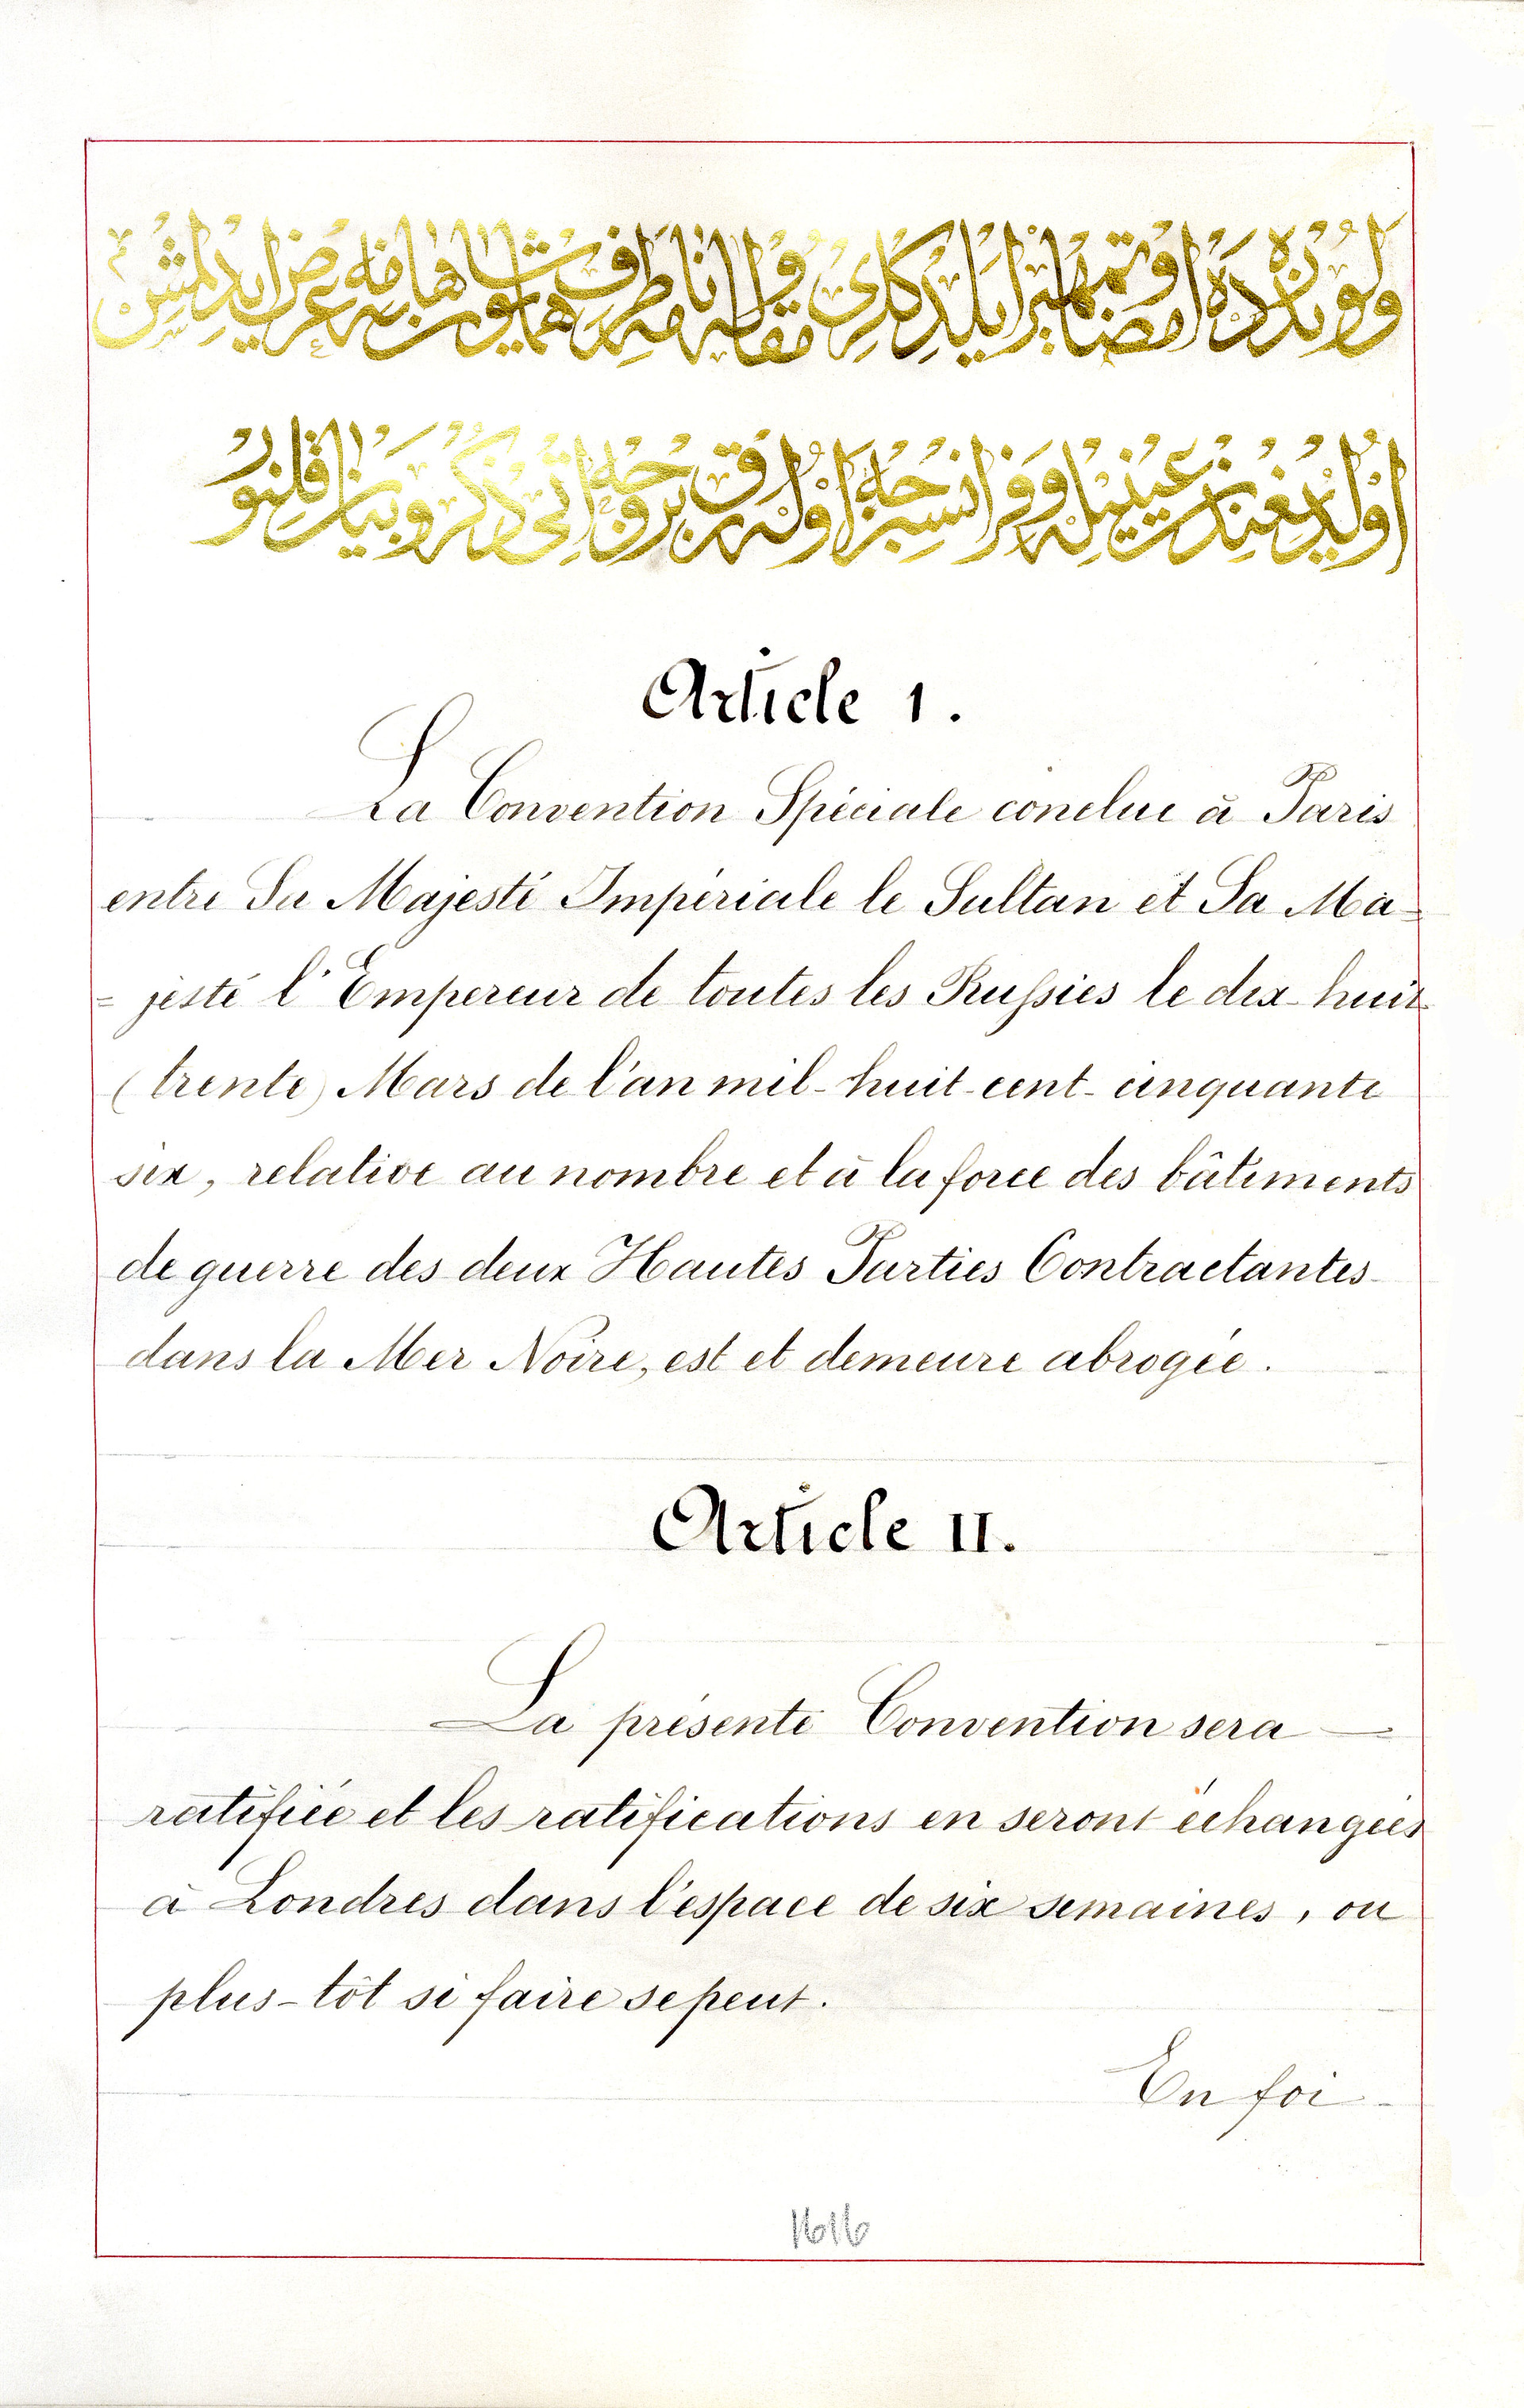 ولوندرەده امضا و تمهیر ایلدکلری مقاوله‌نامه طرف همایون شاهانەمە عرض ایدلمش
اولدیغندن عینیله و فرانسزجه اولەرق بروجه آتی ذکر و بیان قلنور
Article 1.
La Convention Spéciale conclue à Paris
entre Sa Majesté Impériale le Sultan et Sa Ma-
- jesté l'Empereur de toutes les Russies le dix-huit
(trente) Mars de l'an mil-huit-cent-cinquante
six, relative au nombre et à la force des bâtiments
de guerre des deux Hautes Parties Contractantes
dans la Mer Noire, est et demeure abrogée.
Article II.
La présente Convention sera
ratifiée et les ratifications en seront échangées
à Londres dans l'espace de six semaines, ou
plus-tôt si faire se peut.
En foi -
1616